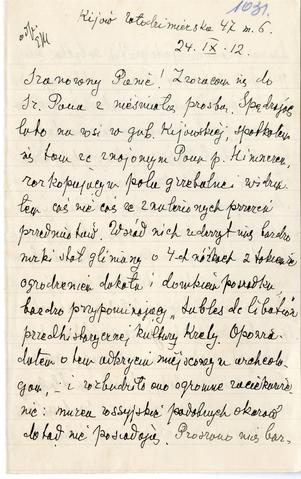 1031.
Kijów Włodzimierska 47 m. 6.
24. IX. 12.
Szanowny Panie! Zwracam się do
Sz. Pana z nieśmiałą prośbą. Spędzając
lato na wsi w gub. Kijowskiej, spotkałem
się tam ze znajomym Panu p. Himnerem,
rozkopującym pola grzebalne i widzia-
łem coś nie coś ze znalezionych przezeń
przedmiotów. Wśród nich uderzył mię bardzo
niski stół gliniany o 4-ch nóżkach z
ogrodzeniem dokoła i pośrodku
bardzo przypominający „tables de libation"
przedhistorycznej kultury Krety. Opowia-
dałem o tem odkryciu miejscowym archeolo-
gom, – i rozbudziło ono ogromne zaciekawie-
nie: muzea rossyjskie podobnych okazów
dotąd nie posiadają. Proszono mię bar-